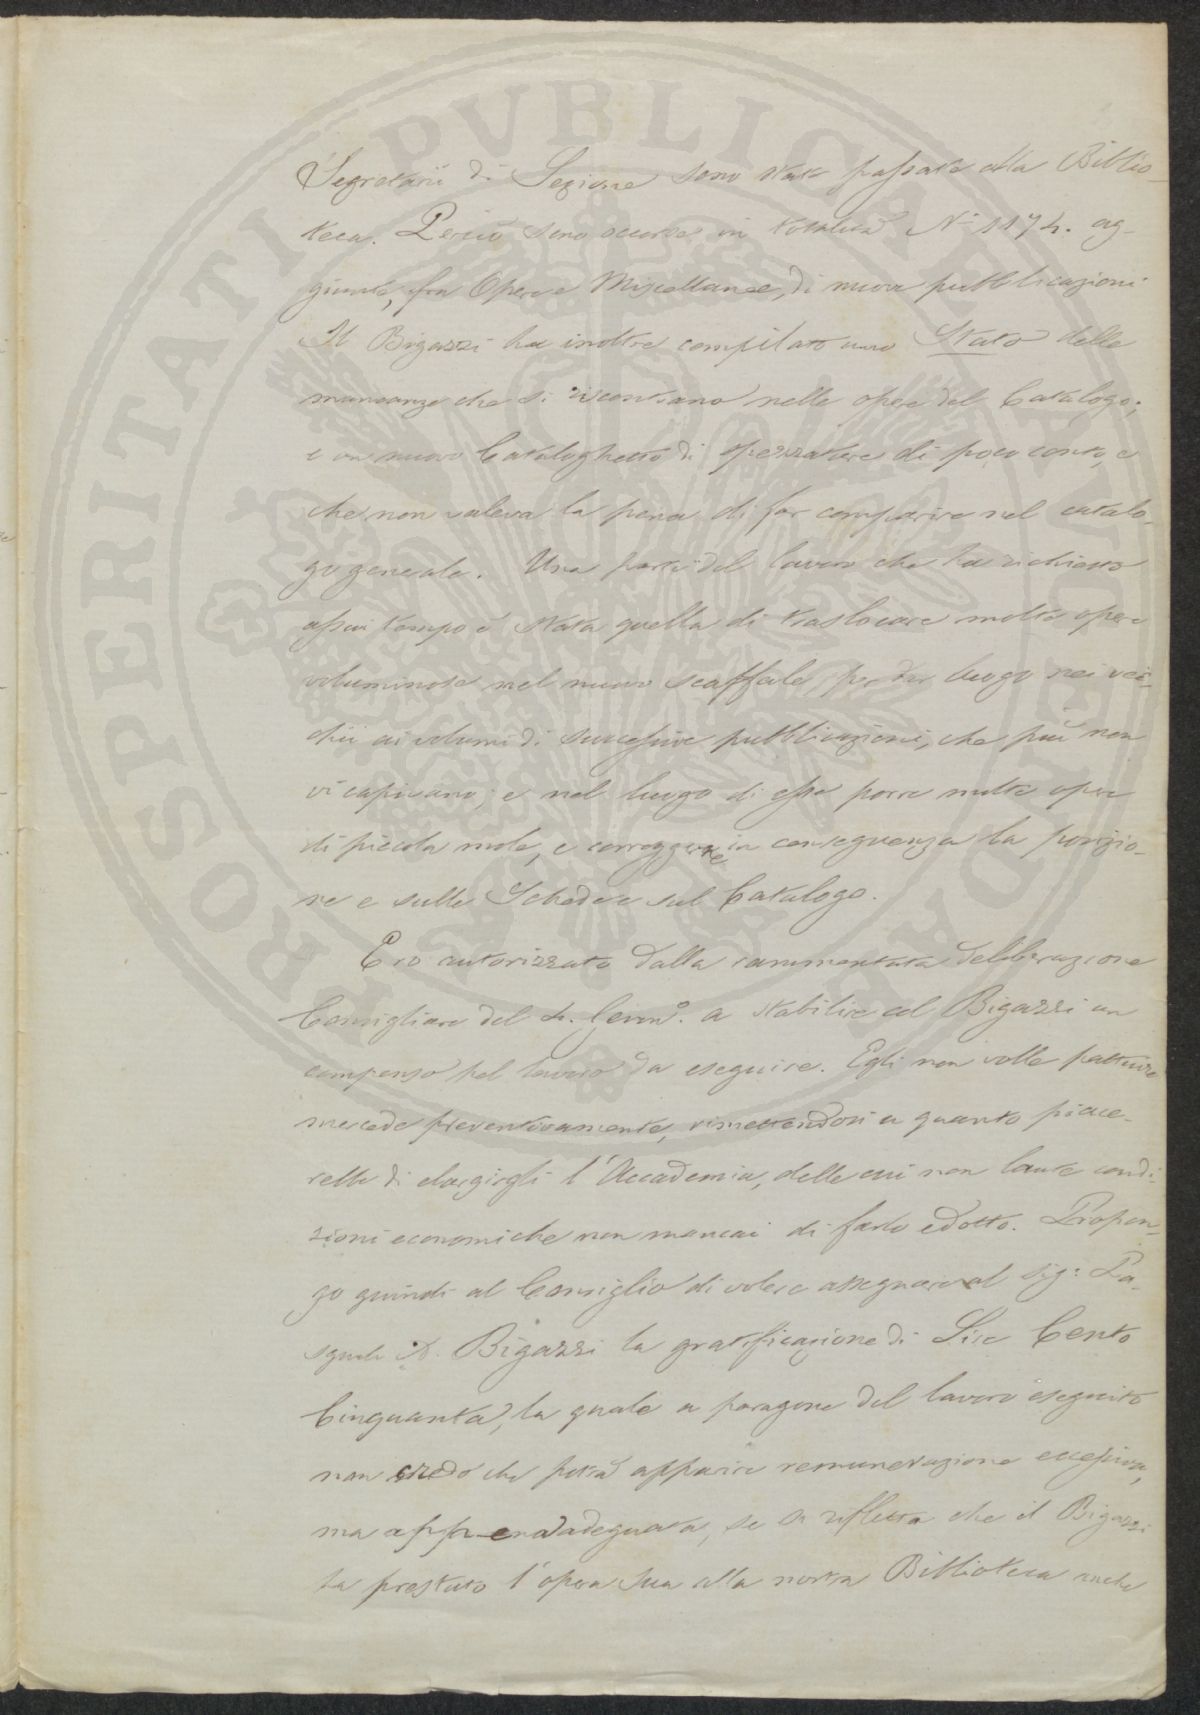 PROSPERITATI PUBLICAE AUGENDAE
Segretarii di Sezione sono state passate alla Biblio-
teca. Perciò sono occorse in totalità N.° 1174. ag-
giunte, fra Opere e Miscellanee, di nuove pubblicazioni
Il Bigazzi ha inoltre compilato uno Stato delle
mancanze che si riscontrano nelle opere del Catalogo;
e un nuovo Cataloghetto di spezzature di poco conto, e
che non valeva la pena di far comparire nel catalo-
go generale. Una parte del lavoro che ha richiesto
assai tempo è stata quella di traslocare molte opere
voluminose nel nuovo scaffale, per dar luogo nei vec-
chii ai volumi di successive pubblicazioni, che più non
vi capivano; e nel luogo di esse porre molte opere
di piccola mole, e correggere in conseguenza la posizio-
ne e sulle Schede e sul Catalogo.
Ero autorizzato dalla rammentata deliberazione
Consigliare del 4. Genn.° a stabilire col Bigazzi un
compenso pel lavoro da eseguire. Egli non volle pattuire
mercede preventivamente, rimettendosi a quanto piace-
rebbe di elargirgli l'Accademia, delle cui non laute condi-
zioni economiche non mancai di farlo edotto. Propon-
go quindi al Consiglio di volere assegnare al Sig: Pa-
squale A. Bigazzi la gratificazione di Lire Cento
Cinquanta, la quale a paragone del lavoro eseguito
non credo che potrà apparire remunerazione eccessiva,
ma appena adeguata, se si rifletta che il Bigazzi
ha prestato l'opera sua alla nostra Biblioteca anche